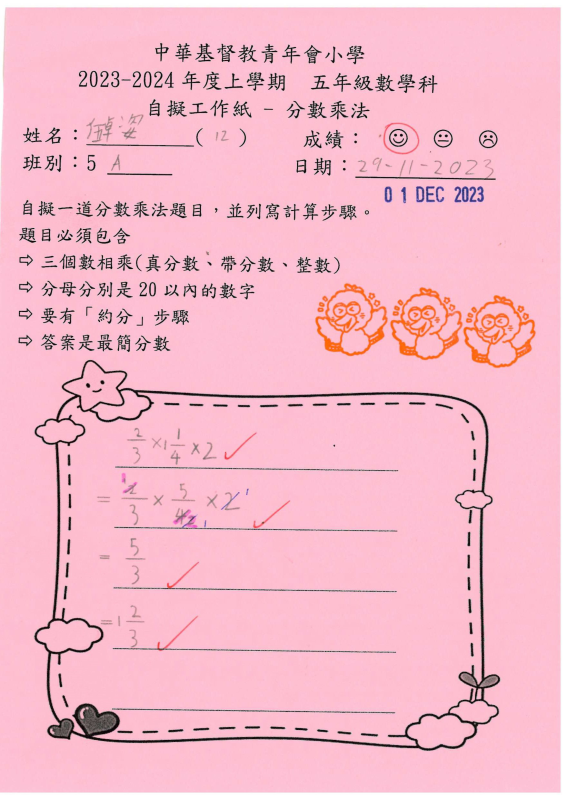 中華基督教青年會小學
2023-2024 年度上學期 五年級數學科
自擬工作紙 - 分數乘法
姓名：姿 ( 12 ) 成績：
班別：5 A 日期：29-11-2023
01 DEC 2023
自擬一道分數乘法題目，並列寫計算步驟。
題目必須包含
⇨ 三個數相乘(真分數、帶分數、整數)
⇨ 分母分別是 20 以內的數字
⇨ 要有「約分」步驟
⇨ 答案是最簡分數
2/3 × 1 1/4 × 2
= 2/3 × 5/4 × 2
= 5/3
= 1 2/3